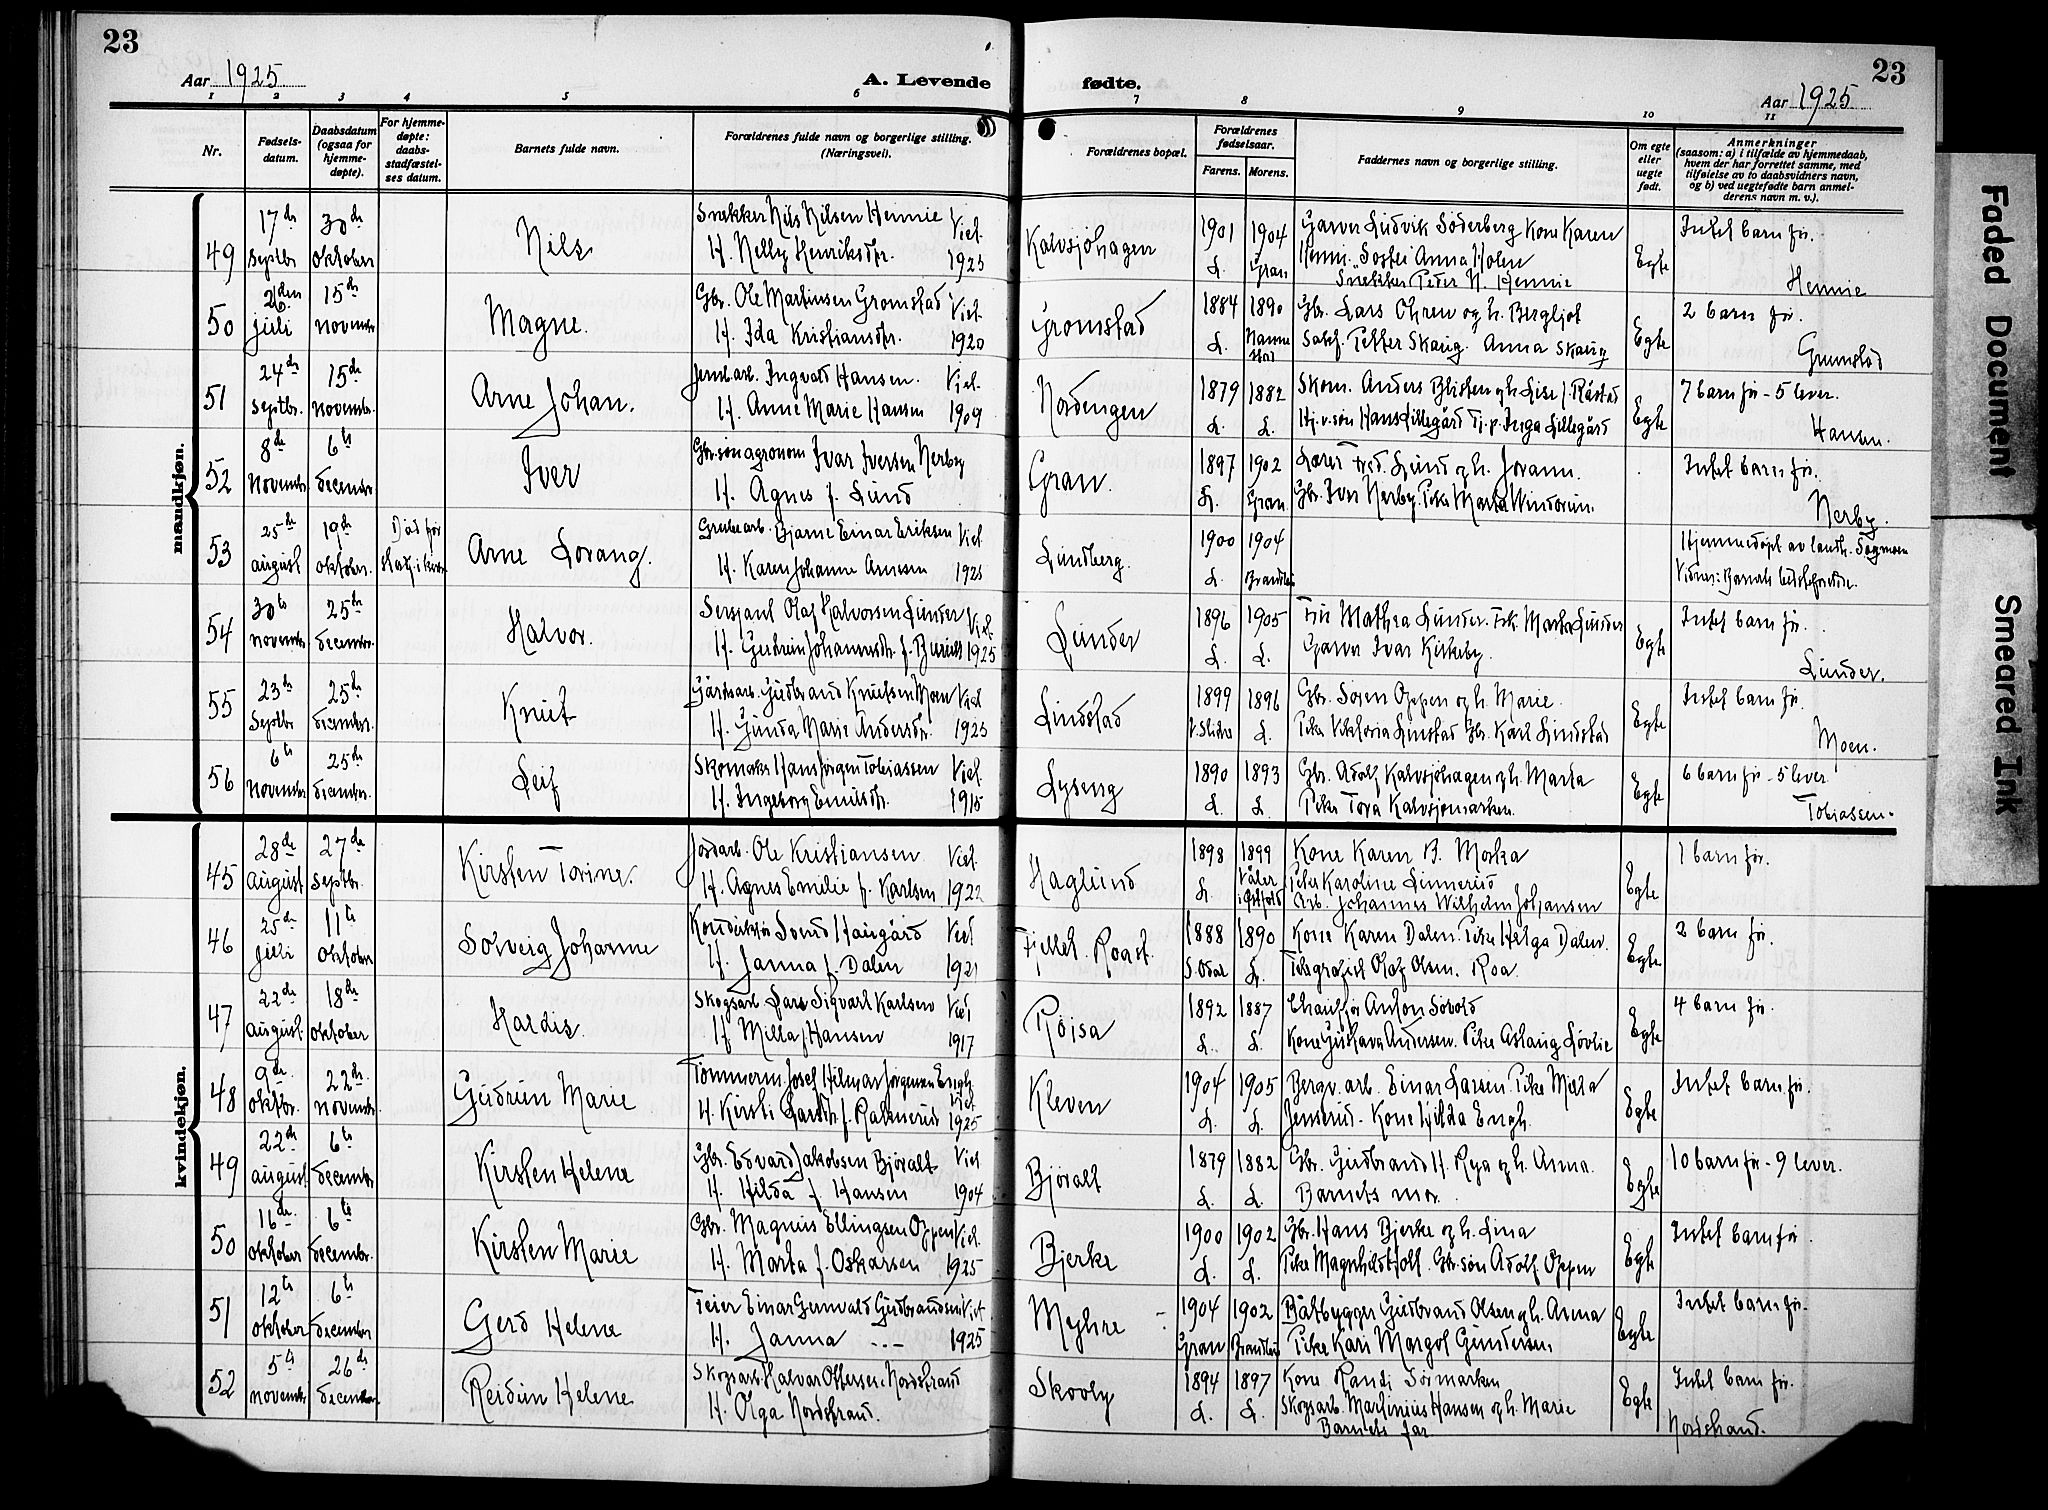 23
Aar 1925
A. Levende
fødte.
Aar 1925
23
1 2 3 4 5 6 7 8 9 10 11
Nr.
Fødsels-
datum.
Daabsdatum
(ogsaa for
hjemme-
døpte).
For hjemme-
døpte:
daabs-
stadfæstel-
ses datum.
Barnets fulde navn.
Forældrenes fulde navn og borgerlige stilling.
(Næringsvei).
Forældrenes bopæl.
Forældrenes
fødselsaar.
Farens. Morens.
Faddernes navn og borgerlige stilling.
Om egte
eller
uegte
født.
Anmerkninger
(saasom: a) i tilfælde av hjemmedaab,
hvem der har forrettet samme, med
tilføielse av to daabsvidners navn,
og b) ved uegtefødte barn anmel-
derens navn m. v.).
mandkjøn.
49 17de Septbr 30de Oktober Nils
Snekker Nils Nilsen Hennie Viet
H. Nelly Henriksdtr. 1925
Kalvsjøhagen 1901 L. 1904 Gran
Garver Ludvik Søderberg Kone Karen
Hennie. Anna Holen
Snekker Peder N. Hennie
Egte Intet barn før.
Hennie
50 26den juli 15de november Magne.
Gbr. Ole Martinsen Gromstad Viet
H. Ida Kristiansdtr. 1920
Gromstad 1884 L. 1890
Gbr. Lars Ohren og h. Bergljot
Petter Skaug. Anna Skaug
Egte 2 barn før.
Grumstad
51 24de Septbr. 15de novembr. Arne Johan.
Jernb.arb. Ingvald Hansen. Viet
H. Anne Marie Hansen 1909
Nordengen 1879 L. 1882 L.
Skom. Anders Blisten og h. Lise f. Råstad
Hans Lillegård Inga Lillegård
Egte 7 barn før - 5 lever.
Hansen.
52 8de Novembr. 6te decembr Iver
Gbr.søn agronom Ivar Iversen Nerby
H. Agnes f. Lund
Gran. 1897 L. 1902 Gran.
Lærer Fred. Lund og h. Johanne.
Gbr. Iver Nerby. Pike Marta Windorum.
Intet barn før.
Nerby.
53 25de august 19de oktober. Død før stadf. i kirken Arne Lorang.
Grubearb. Bjarne Einar Eriksen Viet
H. Karen Johanne Arnesen 1925
Lundberg. 1900 L. 1904 Brandbu
Hjemmedøpt av landh. Sagmoen
Vidner: Barnets bedsteforældre.
54 30te november 25de decembr. Halvor.
Sersjant Olaf Halvorsen Lunder Viet
H. Gudrun Johannesdtr. f. 1925
Lunder 1896 L. 1905 L.
Fru Mathea Lunder. Frk. Marta Lunder
Garver Ivar Kirkeby.
Egte Intet barn før.
Lunder.
55 23de Septbr 25de decembr. Knut
Gårdsarb. Gudbrand Knutsen Moen Viet
H. Gunda Marie Andersdtr. 1923
Lindstad 1899 V. Slidre 1896 L.
Gbr. Søren Oppen og h. Marie.
Pike Viktoria Linstad Gbr. Karl Lindstad
Egte Intet barn før.
Moen.
56 6te November 25de december. Leif
Skomaker Hans Jørgen Tobiassen Viet.
H. Ingeborg Emilsdtr. 1915
Lyseng 1890 L. 1893 L.
Gbr. Adolf Kalvsjøhagen og h. Marta
Pike Tora Kalvsjømarken.
Egte 6 barn før - 5 lever
Tobiassen.
kvindekjøn.
45 28de August 27de Septbr. Kirsten Torine.
Jordarb. Ole Kristiansen Viet.
H. Agnes Emilie f. Karlsen 1922
Haglund 1898 L. 1899 Våler i Østfold
Kone Karen B. Moska
Pike Karoline Linnerud
Arb. Johannes Wilhelm Johansen
Egte 1 barn før.
46 25de Juli 11te Oktober Solveig Johanne
Konduktør Svend Haugård Viet
H. Janna f. Dalen 1921
Fjellet. Roast. 1888 S. Odal 1890 L.
Kone Karen Dalen. Pike Helga Dalen.
Telegrafist Olaf Olsen. Roa.
Egte 2 barn før.
47 22de August 18de Oktober Hardis.
Skogsarb. Lars Sigvart Karlsen Viet
H. Milla f. Hansen 1917
Røisa 1892 L. 1887 L.
Chauffør Anton Sovold
Kone Gustava Andersen. Pike Aslaug Løvlie
Egte 4 barn før.
48 9de Oktbr. 22de novembr. Gudrun Marie
Tømmerm Josef Hilmar Jørgensen Engh. Viet
H. Kirsti Larsdtr. f. Raknerud 1925
Kleven 1904 L. 1905 L.
Bergv. arb. Einar Larsen. Pike Marta
Jenserud - Kone Hilda Engh.
Egte Intet barn før.
49 22de august 6te decembr Kirsten Helene
Gbr. Edvard Jakobsen Bjøralt Viet
H. Hilda f. Hansen 1904
Bjøralt 1879 L. 1882 L.
Gbr. Gudbrand H. Rya og h. Anna.
Barnets mor.
Egte 10 barn før - 9 lever.
50 16de Oktober 6te decembr. Kirsten Marie
Gbr. Magnus Ellingsen Oppen Viet.
H. Marta f. Oskarsen 1925
Bjerke 1900 L. 1902 L.
Gbr. Hans Bjerke og h. Lina
Pike Magnhild Gbr.søn Adolf Oppen
Egte Intet barn før.
51 12te Oktober 6te december Gerd Helene
Feier Einar Gunvald Gudbrandsen Viet
H. Janna -..- 1925
Myhre 1904 Gran 1902 Brandbu
Båtbygger Gudbrand Olsen og h. Anna
Pike Kari Margot Gundersen.
Egte Intet barn før.
52 5te november 26de december Reidun Helene
Skogsarb. Halvar Ottersen Nordstrand
H. Olga Nordstrand.
Skooby 1894 L. 1897 L.
Kone Randi Sørmarken
Skogsarb. Martinius Hansen og h. Marie
Barnets far
Egte Intet barn før.
Nordstrand.
Faded Document
Smeared Ink